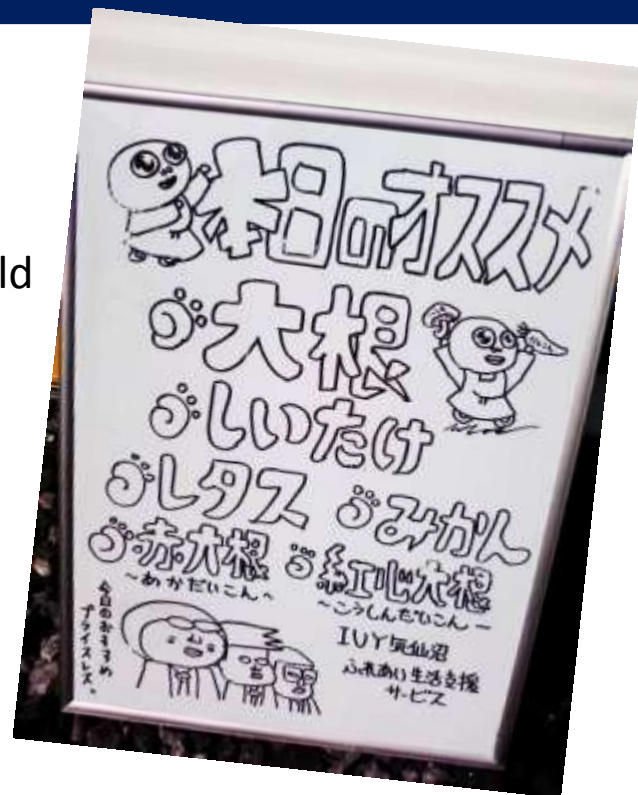 ld
本日のオススメ
大根
しいたけ
レタス
みかん
赤大根
〜あかだいこん〜
紅心大根
〜こうしんだいこん〜
今日のおすすめ
プライスレス。
IVY気仙沼
ふれあい生活支援
サービス